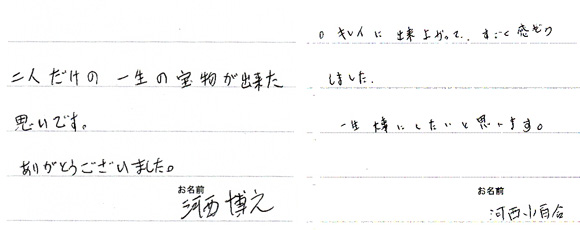 二人だけの 一生の宝物が出来た
思いです。
ありがとうございました。
お名前
河西 博之
○ キレイに 出来上がって、すごく 感動
しました。
一生 大事にしたいと思います。
お名前
河西小百合